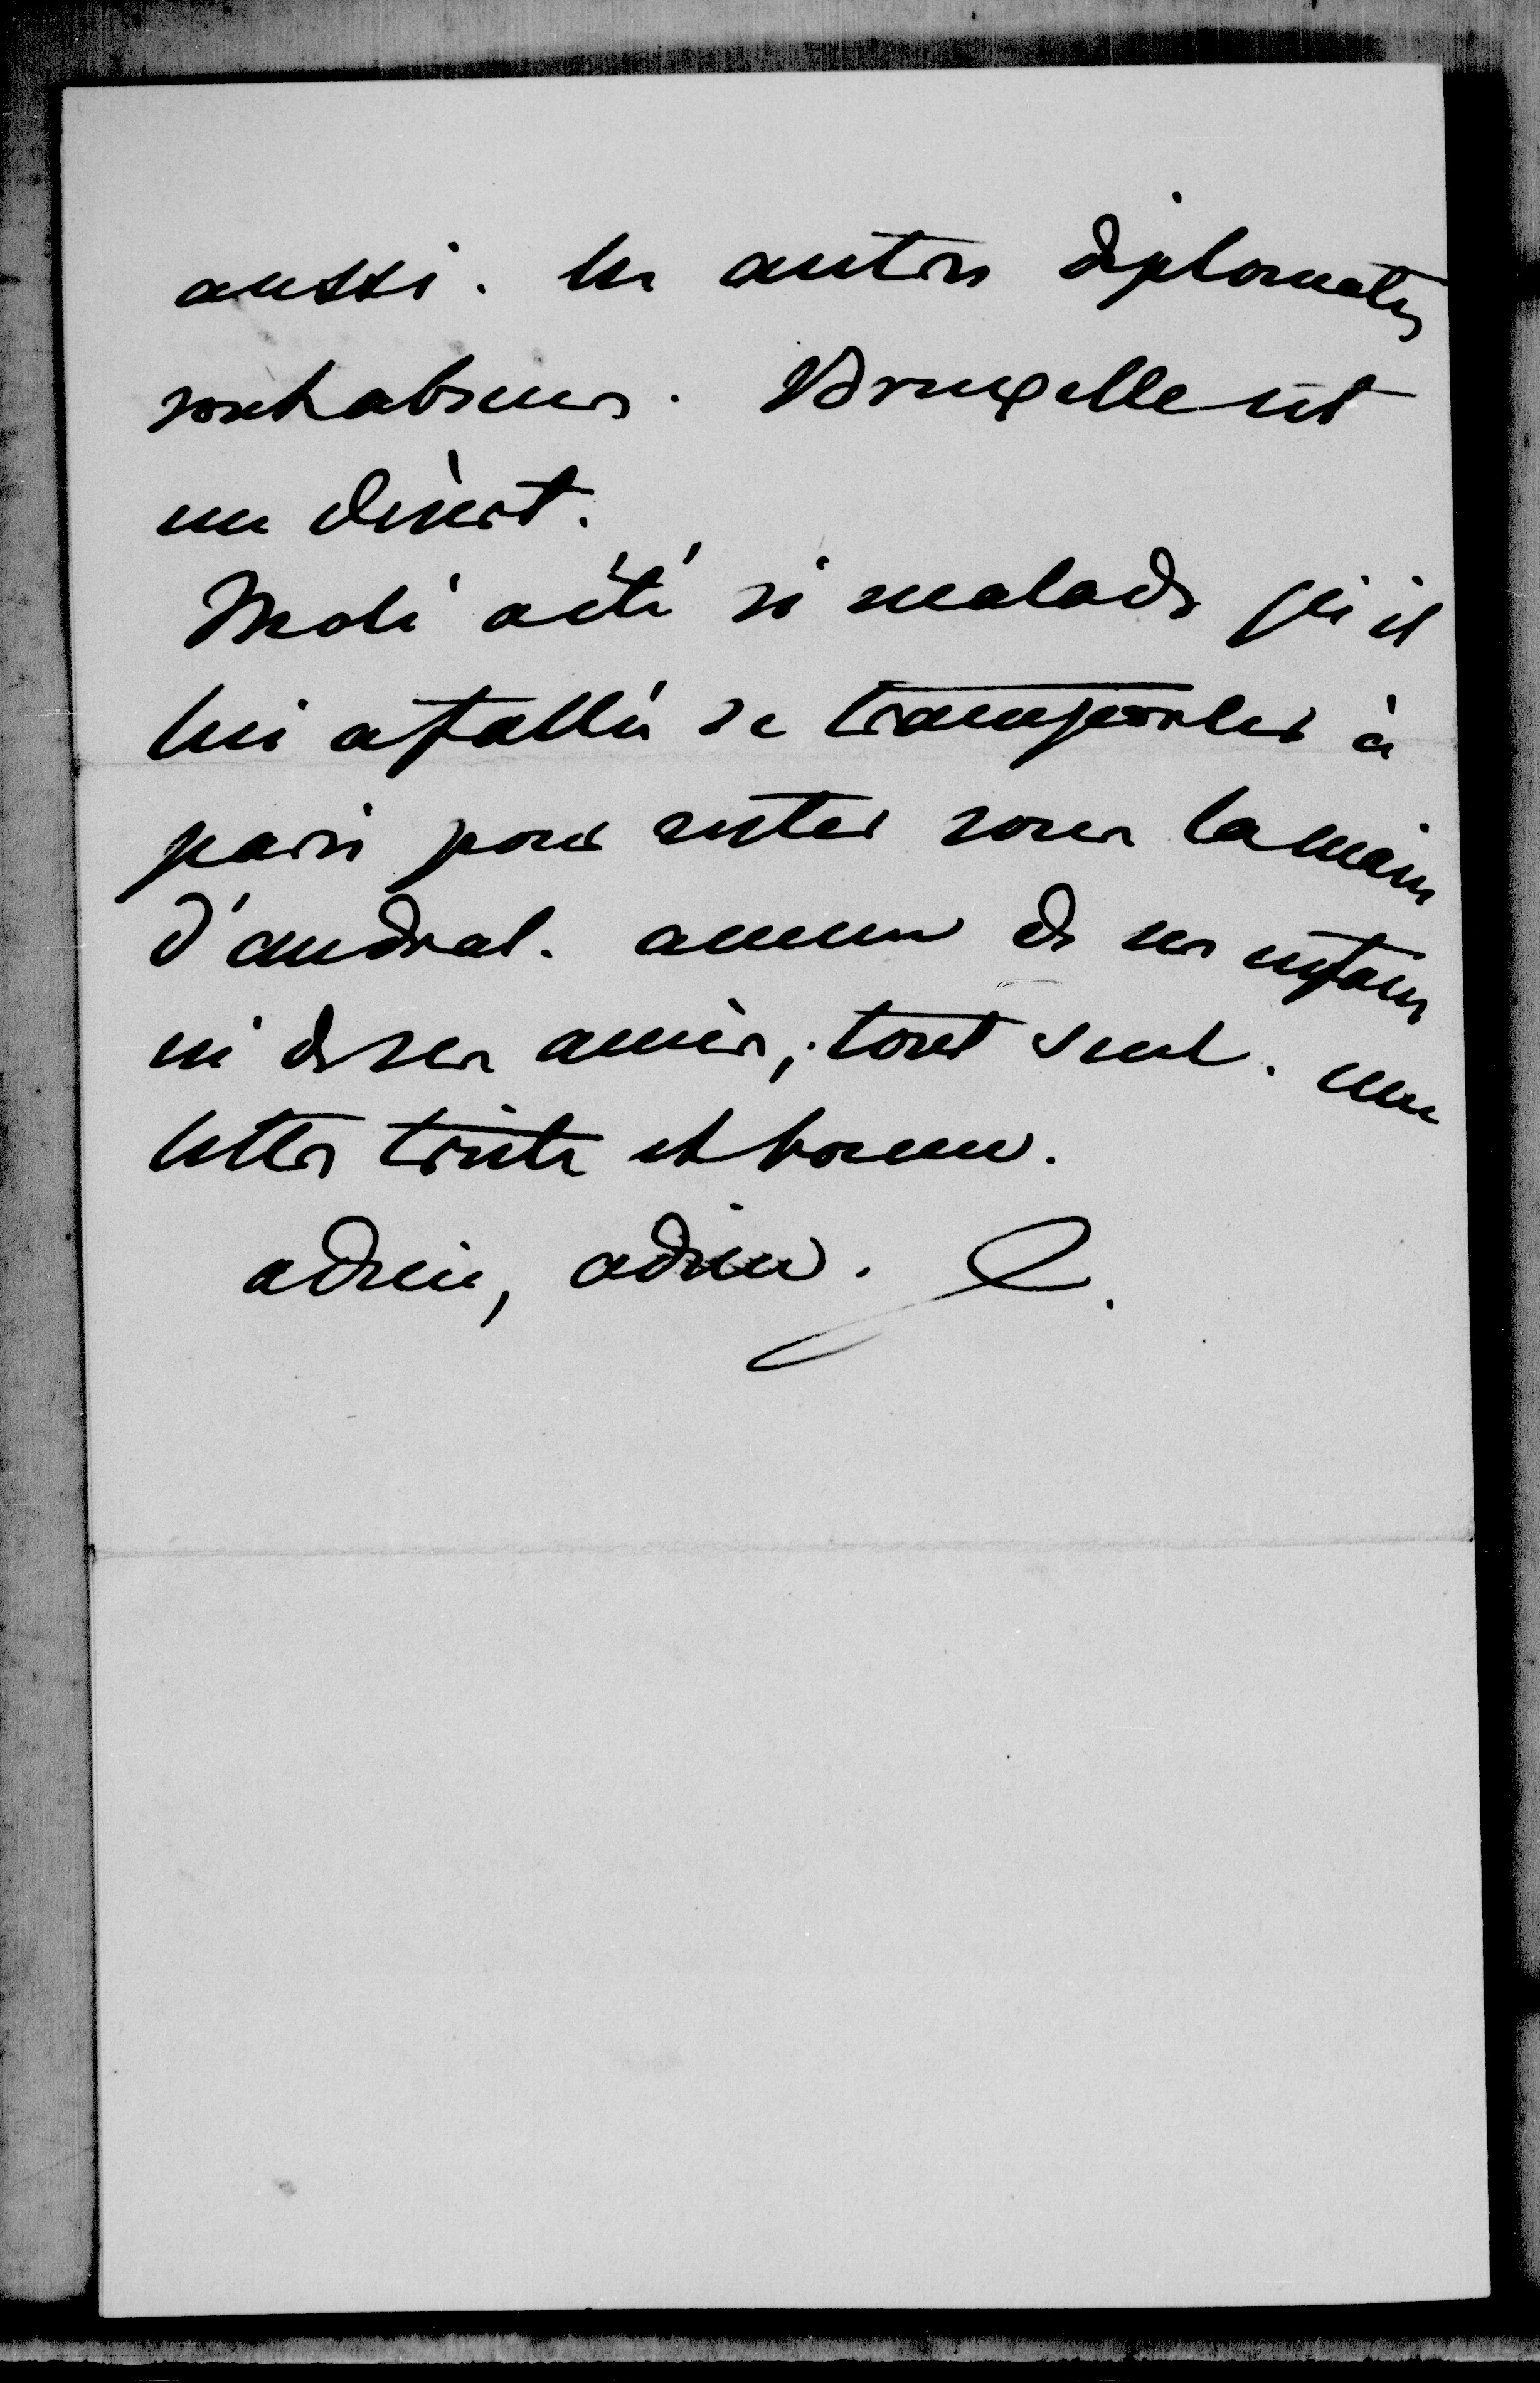 aussi. les autres diplomates
sont absens. Bruxelles est
un désert.
Molé a été si malade qu'il
lui a fallu se transporter à
paris pour rester sous la main
d'andral. aucun de ses enfans
ni de ses amis, tout seul. une
lettre triste et bonne.
adieu, adieu.